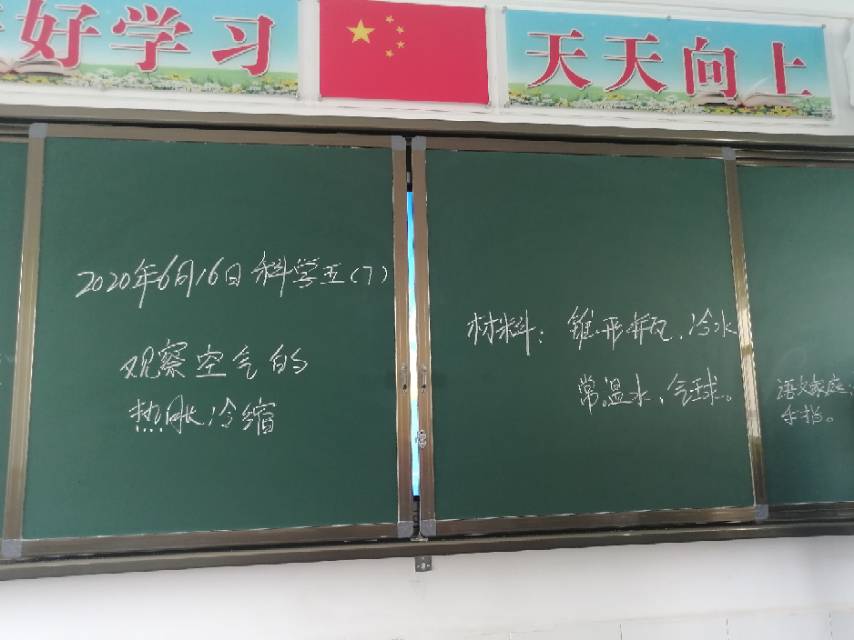 好学习
天天向上
2020年6月16日 科学五(7)
观察空气的
热胀冷缩
材料：锥形瓶、冷水
常温水、气球。
语文家庭: